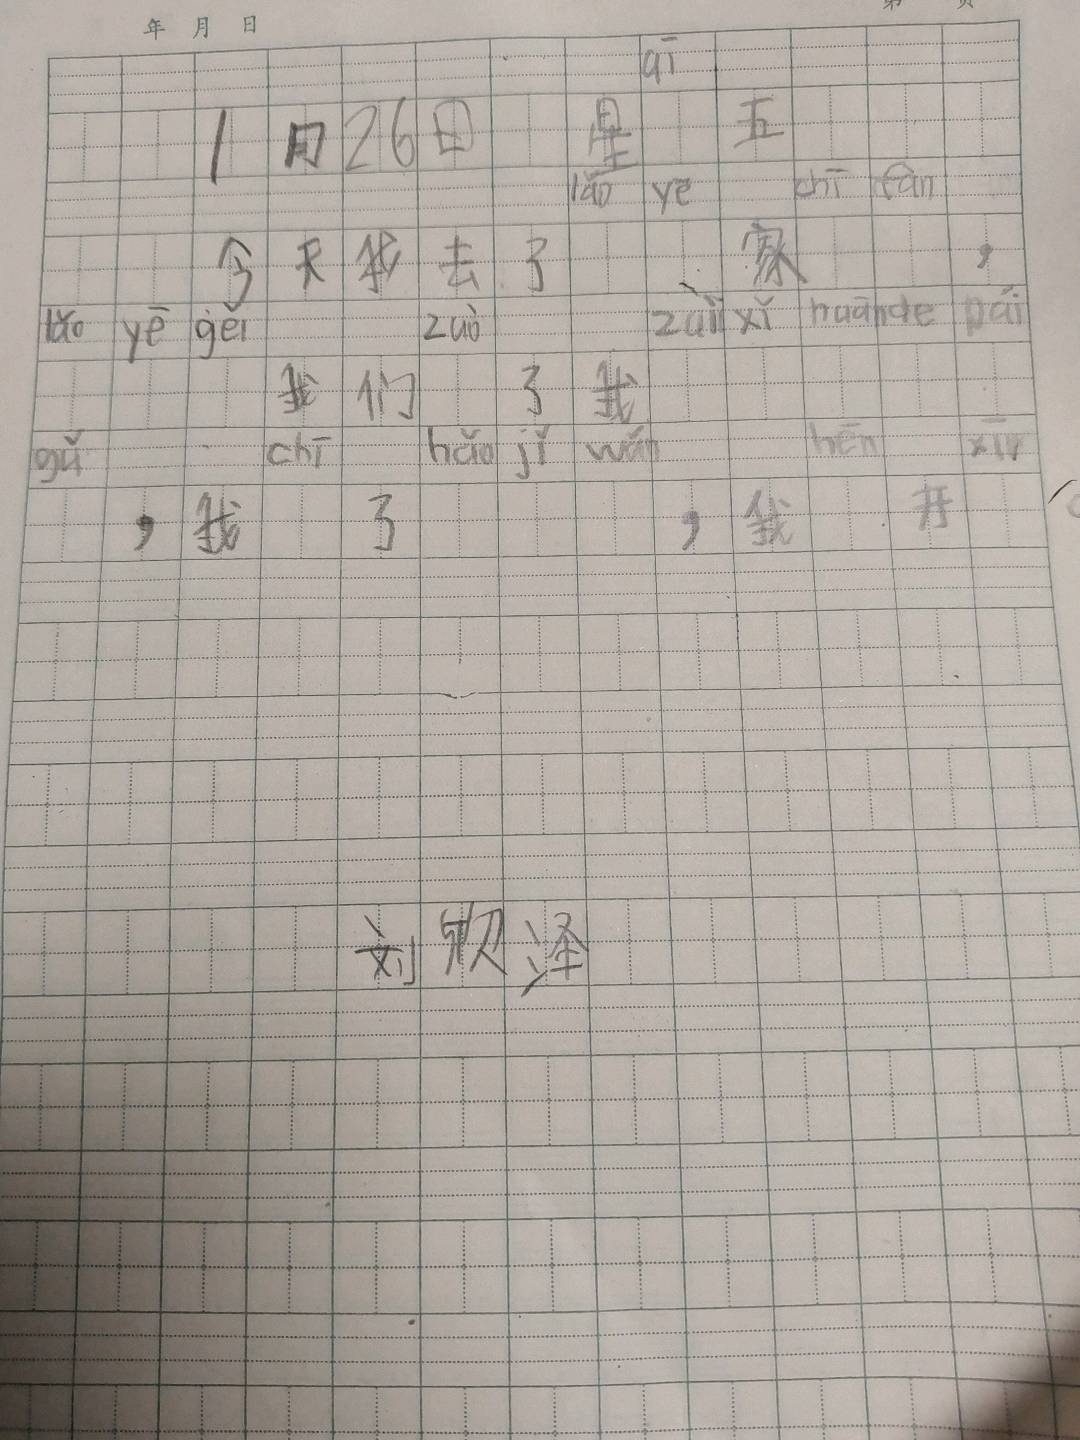 年 月 日
qī
1月26日 星 五
lǎo yē chī fàn
今天我去了 家 ，
lǎo yē gěi zuò zuì xǐ huān de pái
我们 了我
gǔ chī hǎo jǐ wǎn hěn xīn
，我 了 ，我 开
刘 泽